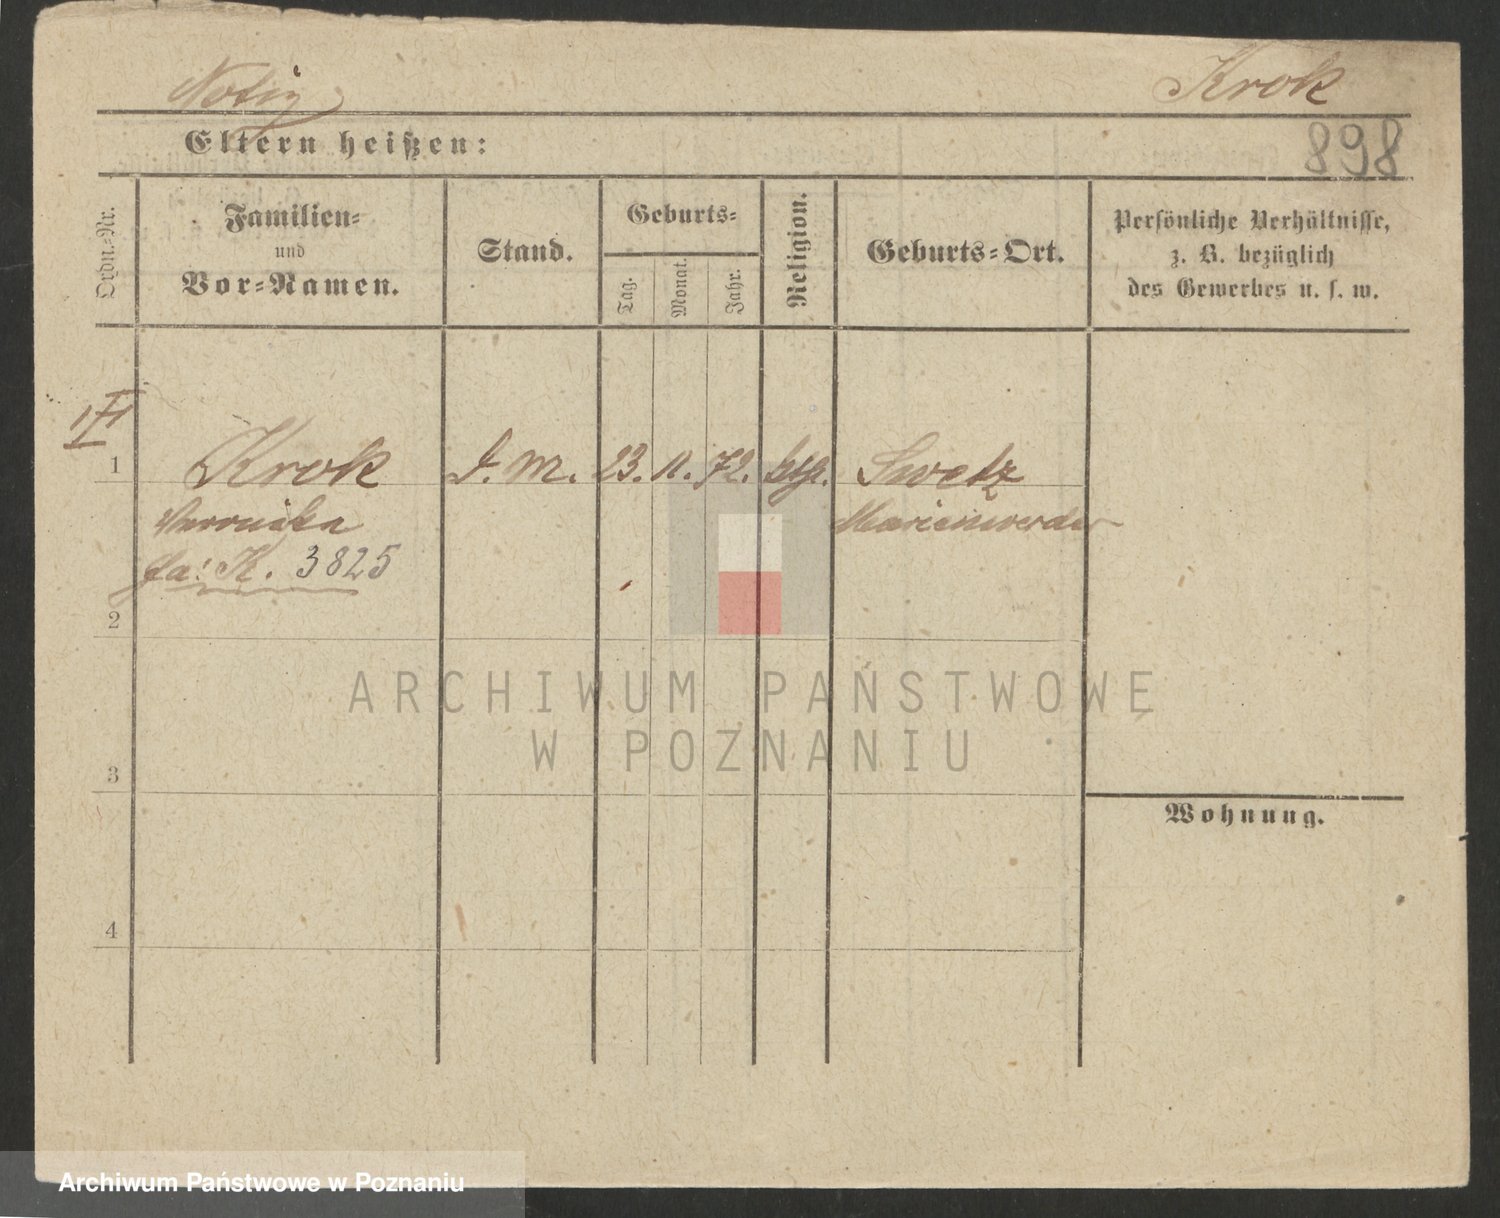 Notiz
Krok
898
Eltern heißen:
Ordn.-Nr.
Familien-
und
Vor-Namen.
Stand.
Geburts-
Tag.
Monat.
Jahr.
Religion.
Geburts-Ort.
Persönliche Verhältnisse,
z. B. bezüglich
des Gewerbes u. s. w.
1 Krok D. M. 23. 11. 72. kth. Swetz
Marienwerder
K. 3825
2
3
4
Wohnung.
ARCHIWUM PAŃSTWOWE
W POZNANIU
Archiwum Państwowe w Poznaniu